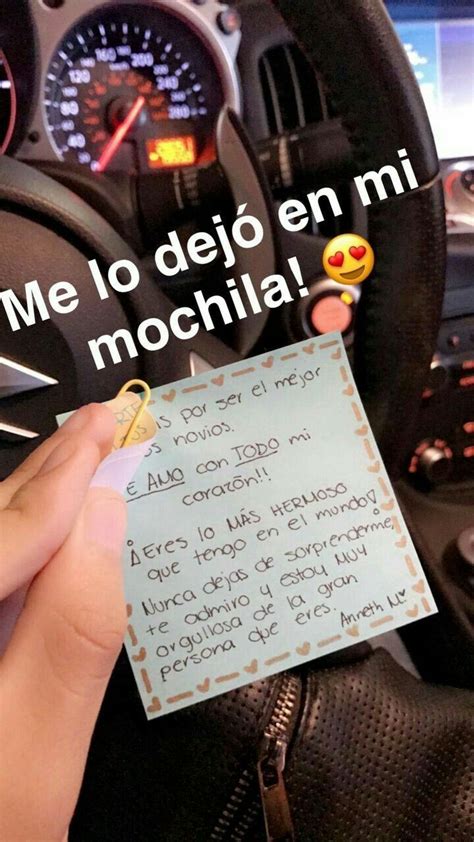 Me lo dejó en mi
mochila! 😍
por ser el mejor
novios.
AMO con TODO mi
corazón!!
¡Eres lo MÁS HERMOSO
que tengo en el mundo!
Nunca dejas de sorprenderme,
te admiro y estoy MUY
orgullosa de la gran
persona que eres.
Anneth N.